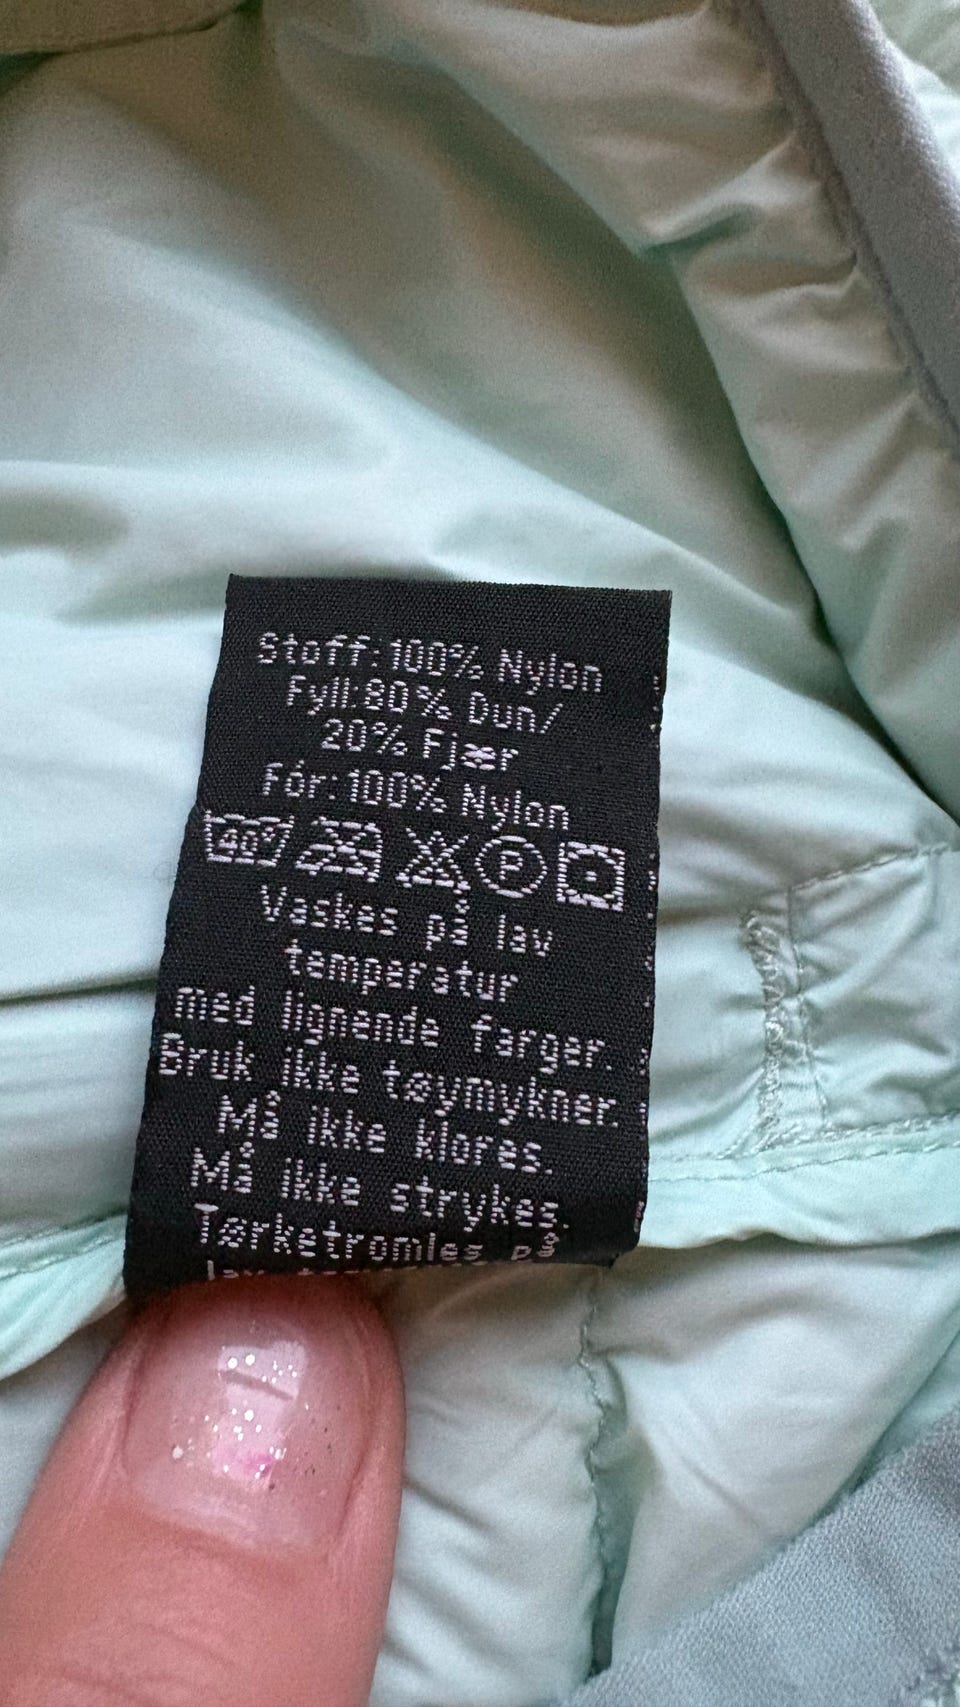 Stoff: 100% Nylon
Fyll: 80% Dun/
20% Fjær
Fór: 100% Nylon
40 P
Vaskes på lav
temperatur
med lignende farger.
Bruk ikke tøymykner.
Må ikke klores.
Må ikke strykes.
Tørketromles på
lav